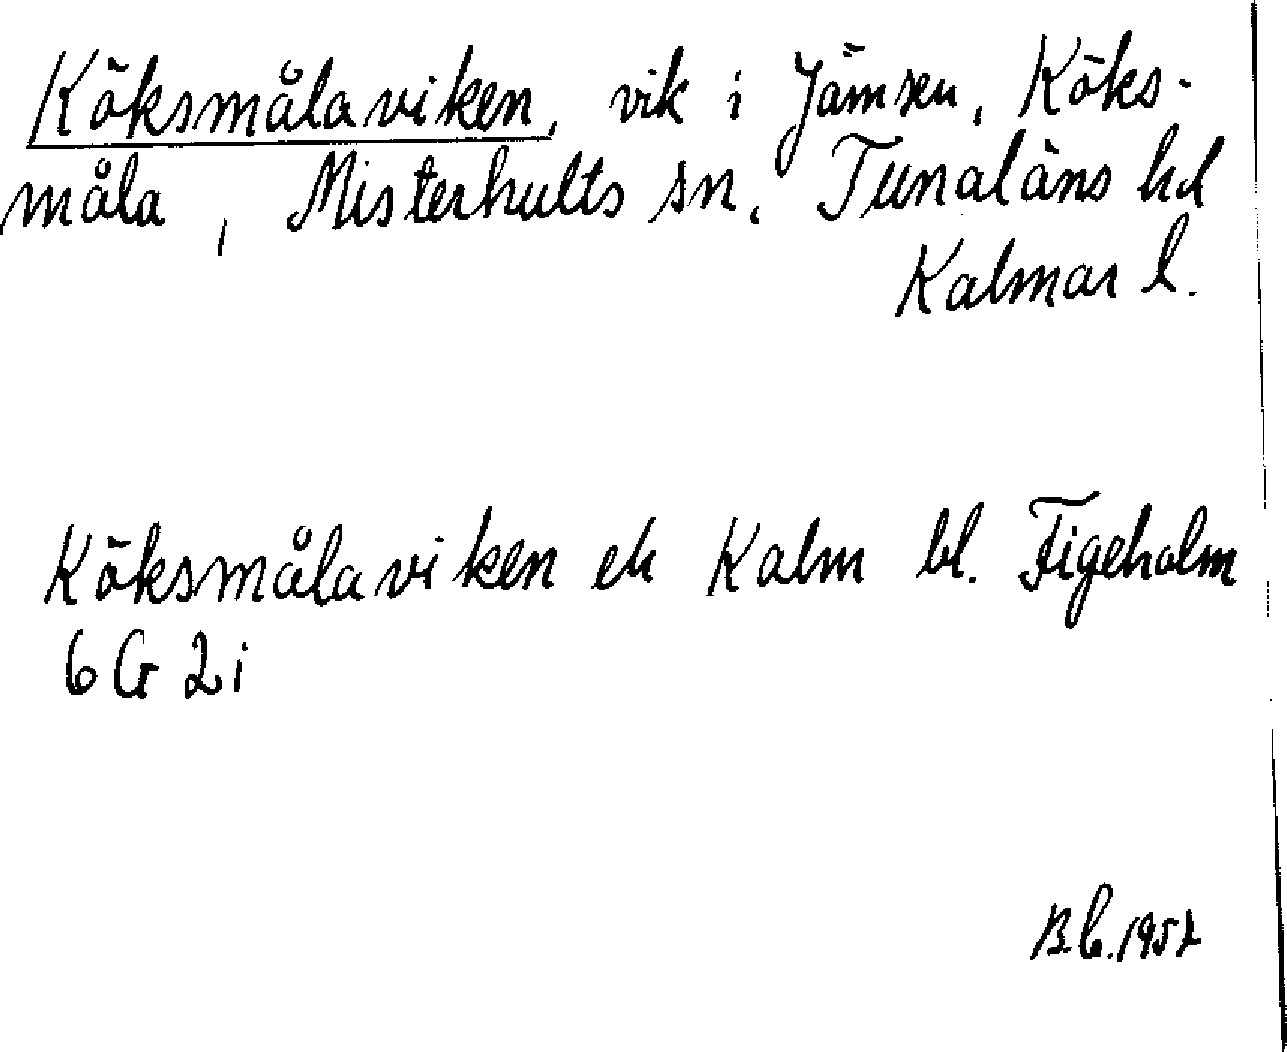 Köksmålaviken, vik i Jämsen, Köks-
måla, Misterhults sn, Tunaläns hd
Kalmar l.
Köksmålaviken ek Kalm bl. Figeholm
6 G 2i